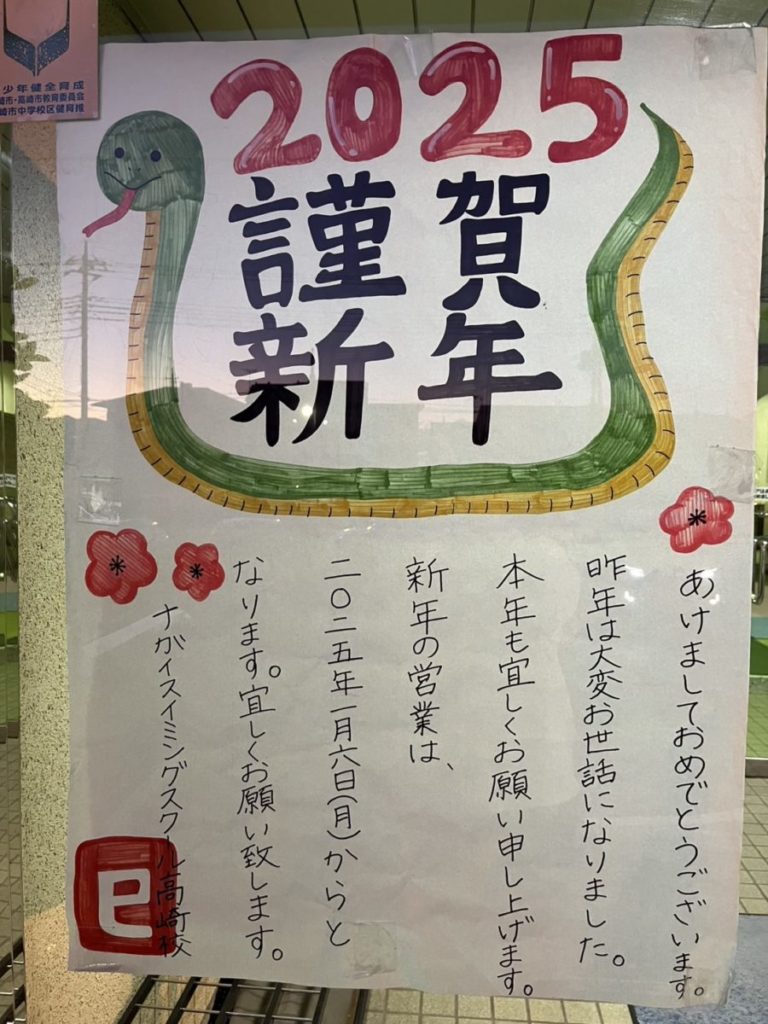 少年健全育成
崎市・高崎市教育委員会
崎市中学校区健育推
2025
謹賀
新年
あけましておめでとうございます。
昨年は大変お世話になりました。
本年も宜しくお願い申し上げます。
新年の営業は、
二〇二五年一月六日(月)からと
なります。宜しくお願い致します。
ナガイスイミングスクール高崎校
巳